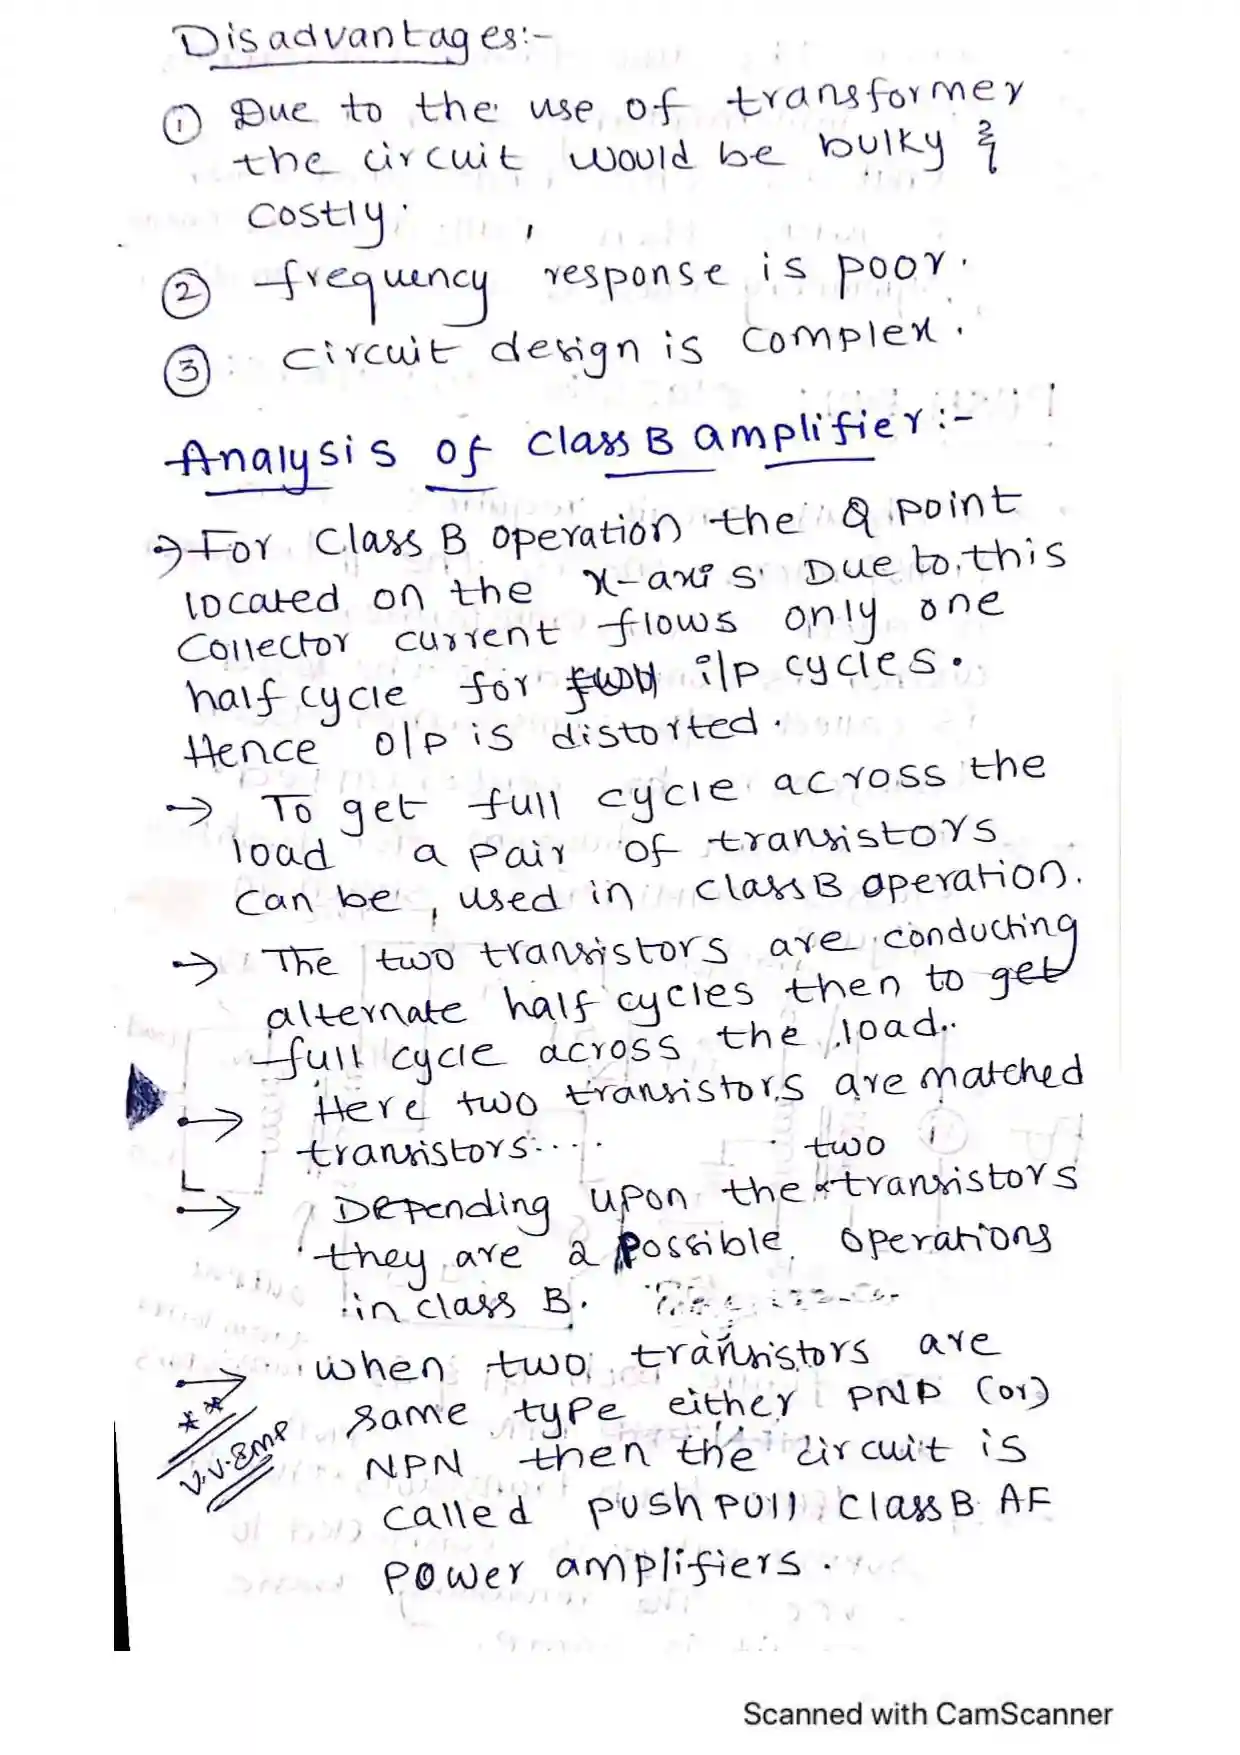 Disadvantages:-
① Due to the use of transformer
the circuit would be bulky &
costly.
② frequency response is poor.
③ circuit design is complex.
Analysis of Class B amplifier:-
→ For Class B operation the Q point
located on the x-axis. Due to this
Collector current flows only one
half cycle for full i/p cycles.
Hence o/p is distorted.
→ To get full cycle across the
load a pair of transistors
can be used in class B operation.
→ The two transistors are conducting
alternate half cycles then to get
full cycle across the load.
→ Here two transistors are matched
transistors....
two
→ Depending upon the transistors
they are 2 possible operations
in class B.
→ when two transistors are
same type either PNP (or)
** V.V.Imp
NPN then the circuit is
called push pull class B AF
power amplifiers.
Scanned with CamScanner